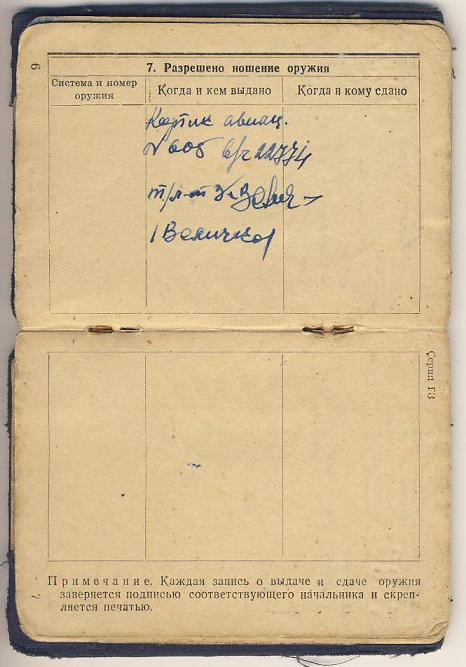 6
7. Разрешено ношение оружия
Система и номер оружия
Когда и кем выдано
Когда и кому сдано
Кортик авиац.
№ 605 в/ч 22774
т/л-т
(Величко)
Серия ГЗ
Примечание. Каждая запись о выдаче и сдаче оружия
заверяется подписью соответствующего начальника и скреп-
ляется печатью.
7